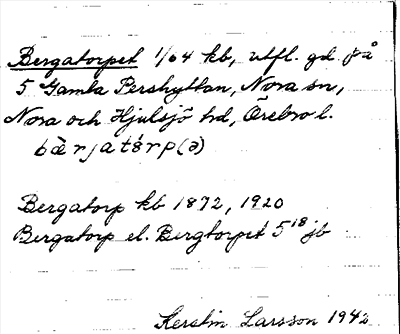 Bergatorpet 1/64 kb, utfl. gd på
5 Gamla Pershyttan, Nora sn,
Nora och Hjulsjö hd, Örebro l.
bær̀jatårp(ə)
Bergatorp kb 1872, 1920
Bergatorp el. Bergtorpet 5¹⁸ jb
Kerstin Larsson 1942